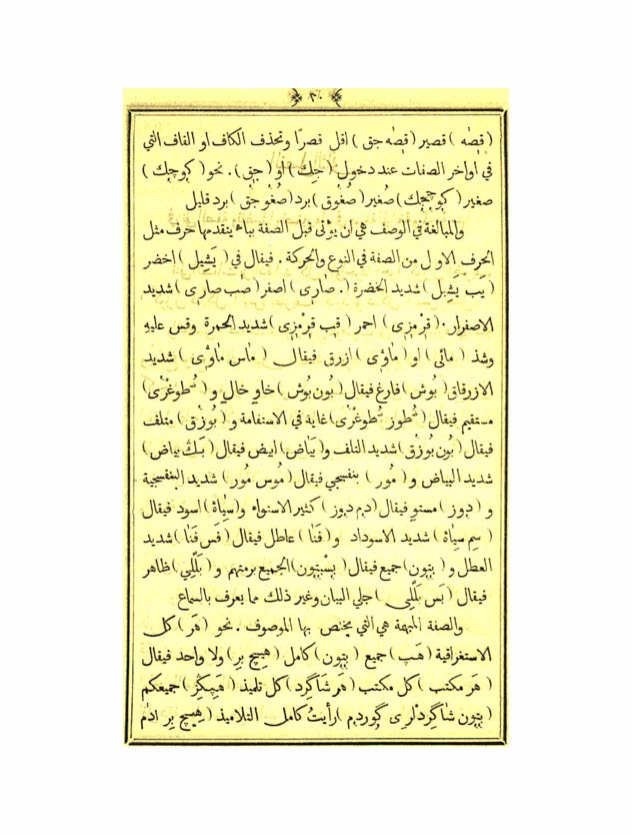 ٢٠
( قصّه ) قصير ( قصّه جق ) اقل قصرًا وتحذف الكاف او القاف التي
في اواخر الصفات عند دخول ( جك ) او ( جق ) . نحو ( كوچك )
صغير ( كوچجك ) صُغير ( صُغوق ) برد ( صُغوجق ) برد قليل
والمبالغة في الوصف هي ان يؤتى قبل الصفة بباء يتقدمها حرف مثل
الحرف الاول من الصفة في النوع والحركة . فيقال في ( يَشيل ) اخضر
( يَب يشيل ) شديد الخضرة ( . صارى ) اصفر ( صَب صارى ) شديد
الاصفرار . ( قرْمزى ) احمر ( قب قرْمزى ) شديد الحمرة وقس عليهِ
وشذ ( مائى ) او ( ماوُى ) ازرق فيقال ( ماس ماوُى ) شديد
الازرقاق ( بُوش ) فارغ فيقال ( بُون بُوش ) خاوٍ خالٍ و ( طوغرُى )
مستقيم فيقال ( طوز طوغرُى ) غاية في الاستقامة و ( بُوزُق ) متلف
فيقال ( بُون بُوزُق ) شديد التلف و ( بَياض ) ابيض فيقال ( بَك بياض )
شديد البياض و ( مُور ) بنفسجي فيقال ( مُوس مُور ) شديد البنفسجية
و ( دوز ) مستوٍ فيقال ( دم دوز ) كثير الاستواء و ( سياه ) اسود فيقال
( سِم سِياه ) شديد الاسوداد و ( فَنا ) عاطل فيقال ( فَس فَنا ) شديد
العطل و ( بتون ) جميع فيقال ( بسْبتون ) الجميع برمتهم و ( بَللى ) ظاهر
فيقال ( بَس بَللى ) جلي البيان وغير ذلك مما يعرف بالسماع
والصفة المبهمة هي التي يختص بها الموصوف . نحو ( هَر ) كل
الاستغراقية ( هَب ) جميع ( بتون ) كامل ( هيچ بر ) ولا واحد فيقال
( هَر مكتب ) كل مكتب ( هَر شاگرد ) كل تلميذ ( هَپكز ) جميعكم
( بتون شاگردلرى گوردم ) رأيت كامل التلاميذ ( هيچ بر ادم